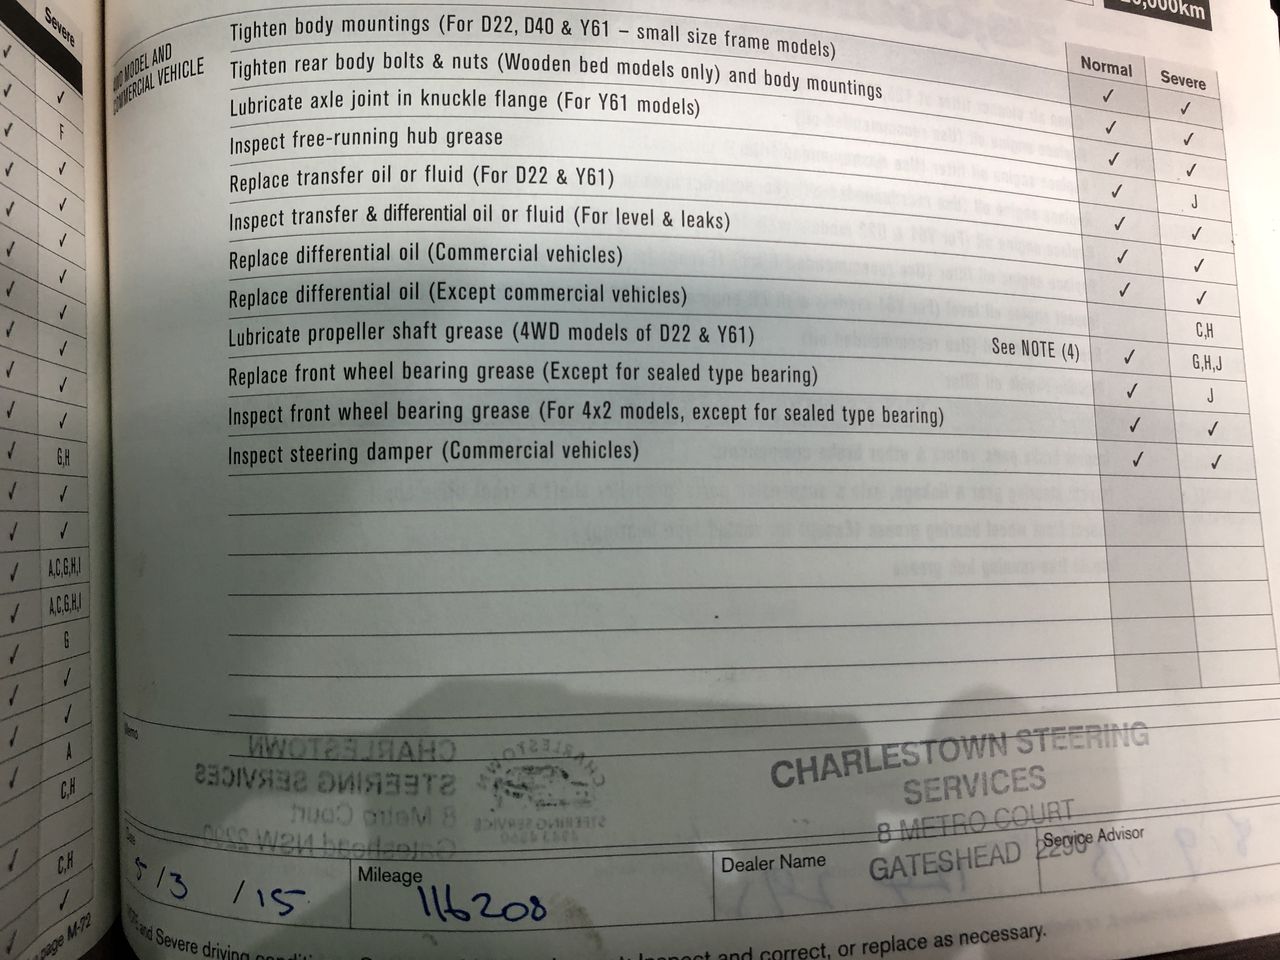 Severe
✓
✓
F
✓
✓
✓
✓
✓
✓
✓
✓
G,H
✓
✓
A,C,G,H,I
A,C,G,H,I
G
✓
✓
A
C,H
C,H
✓
page M-72
4WD MODEL AND
COMMERCIAL VEHICLE
Normal Severe
Tighten body mountings (For D22, D40 & Y61 – small size frame models) ✓ ✓
Tighten rear body bolts & nuts (Wooden bed models only) and body mountings ✓ ✓
Lubricate axle joint in knuckle flange (For Y61 models) ✓ ✓
Inspect free-running hub grease ✓ J
Replace transfer oil or fluid (For D22 & Y61) ✓ ✓
Inspect transfer & differential oil or fluid (For level & leaks) ✓ ✓
Replace differential oil (Commercial vehicles) ✓ ✓
Replace differential oil (Except commercial vehicles) C,H
Lubricate propeller shaft grease (4WD models of D22 & Y61) See NOTE (4) ✓ G,H,J
Replace front wheel bearing grease (Except for sealed type bearing) ✓ J
Inspect front wheel bearing grease (For 4x2 models, except for sealed type bearing) ✓ ✓
Inspect steering damper (Commercial vehicles) ✓ ✓
Memo
CHARLESTOWN STEERING
SERVICES
8 METRO COURT
GATESHEAD 2290
Date
5/3/15
Mileage
116208
Dealer Name
Service Advisor
and Severe driving
and correct, or replace as necessary.